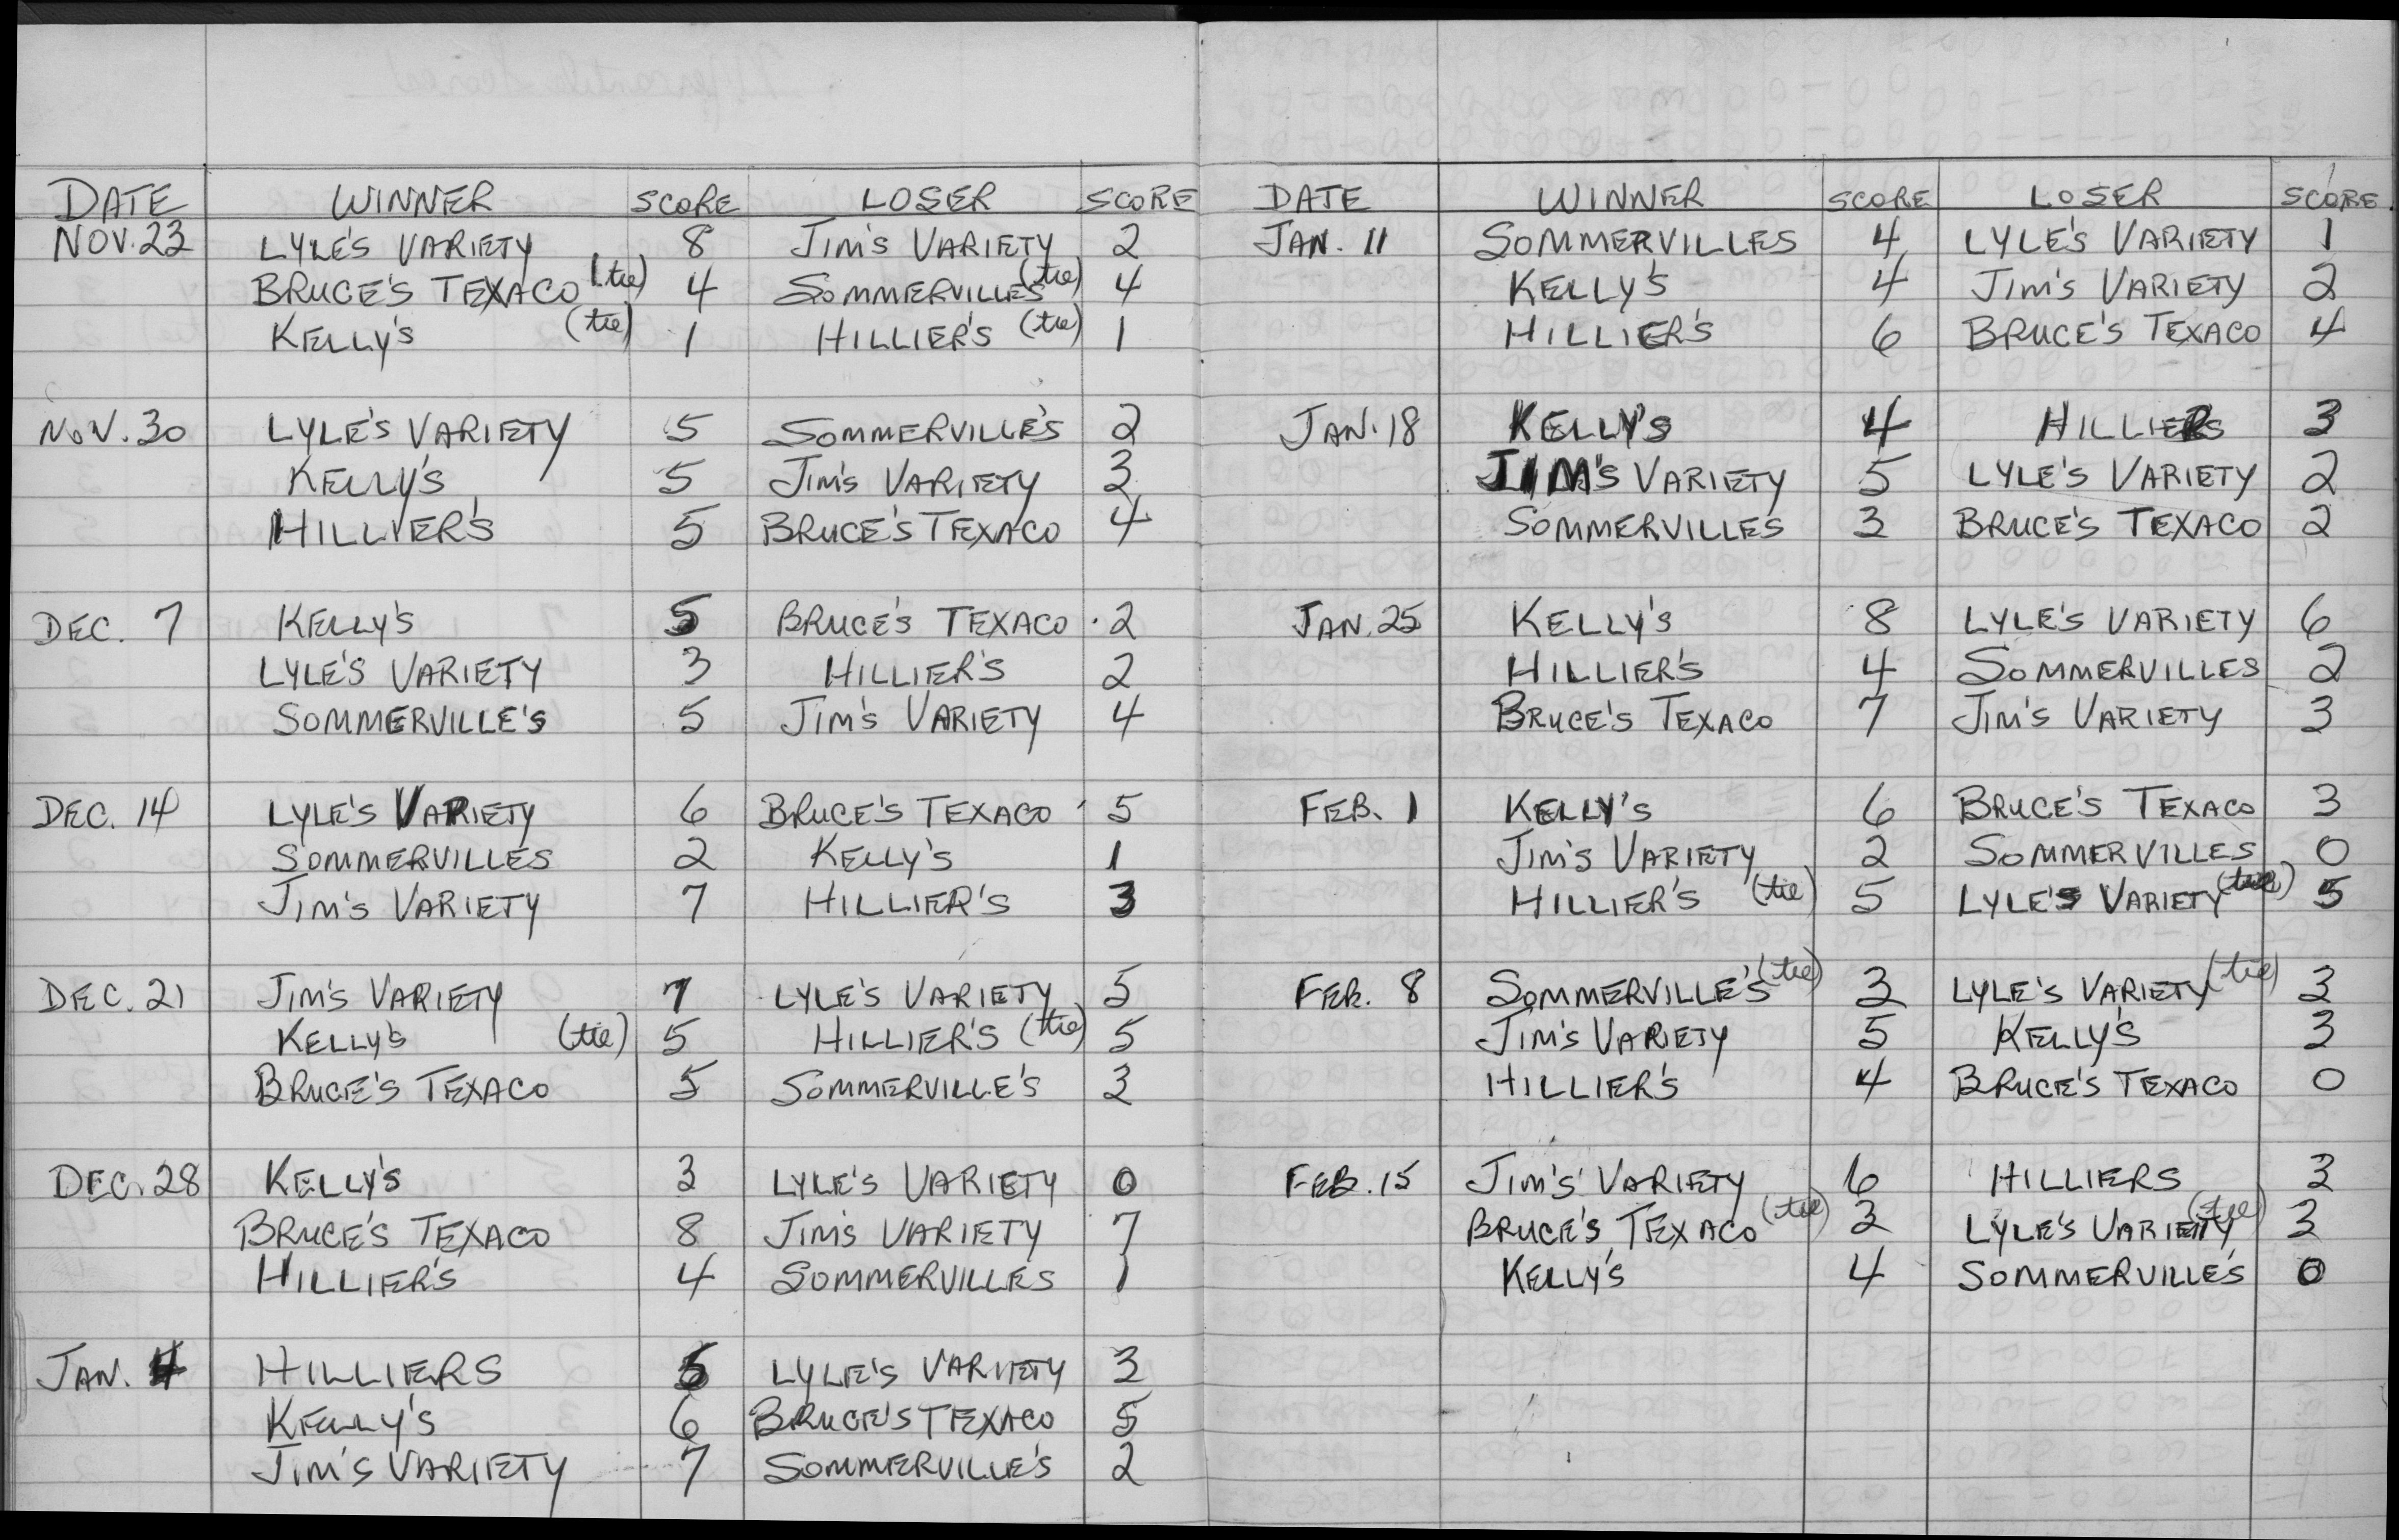 DATE WINNER SCORE LOSER SCORE
NOV. 23 LYLE'S VARIETY 8 JIM'S VARIETY 2
BRUCE'S TEXACO (tie) 4 SOMMERVILLE'S (tie) 4
KELLY'S (tie) 1 HILLIER'S (tie) 1
NOV. 30 LYLE'S VARIETY 5 SOMMERVILLE'S 2
KELLY'S 5 JIM'S VARIETY 3
HILLIER'S 5 BRUCE'S TEXACO 4
DEC. 7 KELLY'S 5 BRUCE'S TEXACO 2
LYLE'S VARIETY 3 HILLIER'S 2
SOMMERVILLE'S 5 JIM'S VARIETY 4
DEC. 14 LYLE'S VARIETY 6 BRUCE'S TEXACO 5
SOMMERVILLES 2 KELLY'S 1
JIM'S VARIETY 7 HILLIER'S 3
DEC. 21 JIM'S VARIETY 7 LYLE'S VARIETY 5
KELLY'S (tie) 5 HILLIER'S (tie) 5
BRUCE'S TEXACO 5 SOMMERVILLE'S 3
DEC. 28 KELLY'S 3 LYLE'S VARIETY 0
BRUCE'S TEXACO 8 JIM'S VARIETY 7
HILLIER'S 4 SOMMERVILLE'S 1
JAN. 4 HILLIERS 5 LYLE'S VARIETY 3
KELLY'S 6 BRUCE'S TEXACO 5
JIM'S VARIETY 7 SOMMERVILLE'S 2
DATE WINNER SCORE LOSER SCORE
JAN. 11 SOMMERVILLES 4 LYLE'S VARIETY 1
KELLY'S 4 JIM'S VARIETY 2
HILLIER'S 6 BRUCE'S TEXACO 4
JAN. 18 KELLY'S 4 HILLIERS 3
JIM'S VARIETY 5 LYLE'S VARIETY 2
SOMMERVILLES 3 BRUCE'S TEXACO 2
JAN. 25 KELLY'S 8 LYLE'S VARIETY 6
HILLIER'S 4 SOMMERVILLES 2
BRUCE'S TEXACO 7 JIM'S VARIETY 3
FEB. 1 KELLY'S 6 BRUCE'S TEXACO 3
JIM'S VARIETY 2 SOMMERVILLES 0
HILLIER'S (tie) 5 LYLE'S VARIETY (tie) 5
FEB. 8 SOMMERVILLE'S (tie) 3 LYLE'S VARIETY (tie) 3
JIM'S VARIETY 5 KELLY'S 3
HILLIER'S 4 BRUCE'S TEXACO 0
FEB. 15 JIM'S VARIETY 6 HILLIERS 3
BRUCE'S TEXACO (tie) 3 LYLE'S VARIETY (tie) 3
KELLY'S 4 SOMMERVILLE'S 0